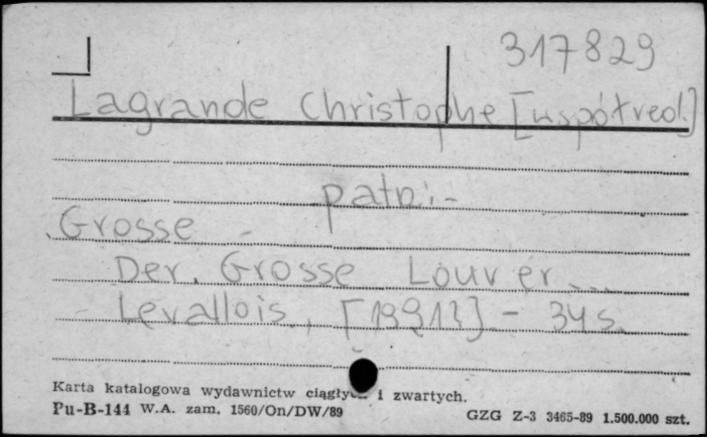 317829
Lagrande Christophe [współred.]
patrz:
Grosse -
Der Grosse Louvre...
Levallois, [1991?] - 34 s.
Karta katalogowa wydawnictw ciągłych i zwartych.
Pu-B-144 W.A. zam. 1560/On/DW/89
GZG Z-3 3465-89 1.500.000 szt.